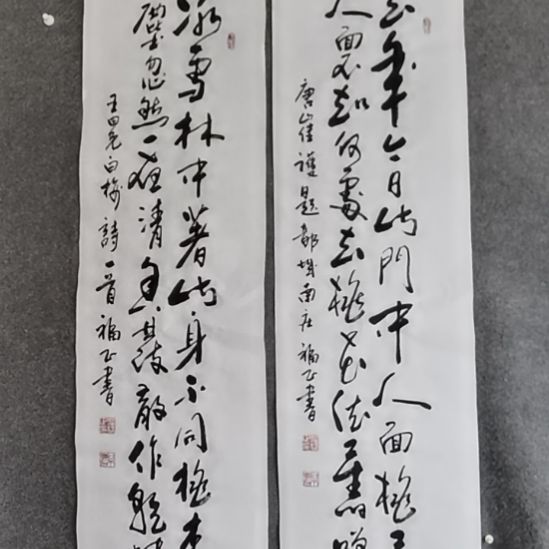 去年今日此门中人面桃
人面不知何處去桃花依舊
唐崔護題都城南庄 福正書
冰雪林中著此身不同桃
塵忽然一夜清香發散作乾
王冕白梅詩一首 福正書